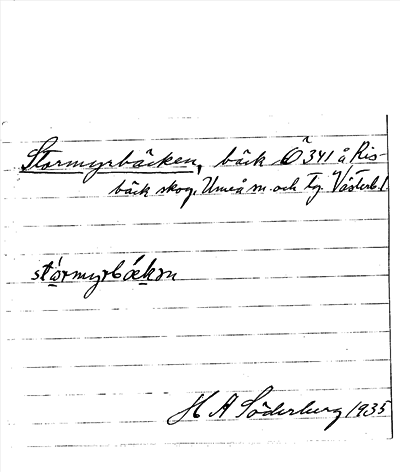 Stormyrbäcken, bäck Ö 341 å Ris-
bäck skog, Umeå sn. och tg. Västerb. l
stórmyrbǽkən
H A Söderberg 1935